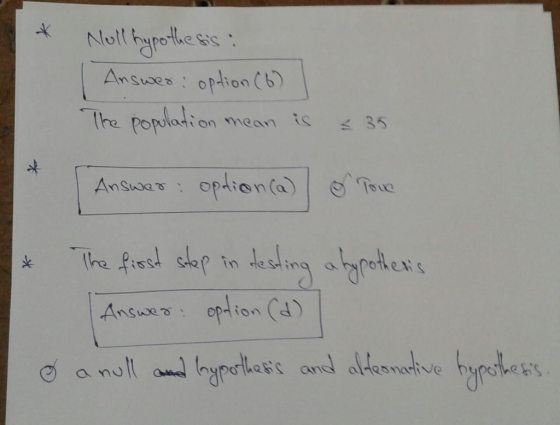 * Null hypothesis :
Answer : option (b)
The population mean is ≤ 35
* Answer : option (a) True
* The first step in testing a hypothesis
Answer : option (d)
a null and hypothesis and alternative hypothesis.